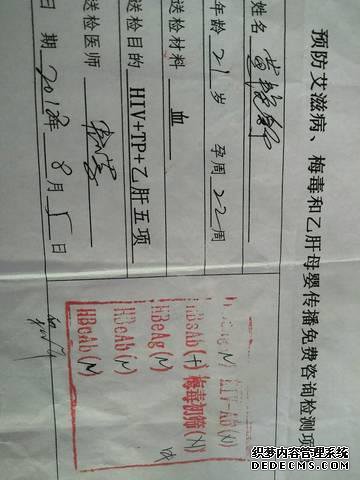 预防艾滋病、梅毒和乙肝母婴传播免费咨询检测项
姓名
年龄 21岁 孕周 22周
送检材料 血
送检目的 HIV+TP+乙肝五项
送检医师
日期 2012年8月5日
HIV-Ab(N)
HBsAb(+) 梅毒初筛(N)
HBeAg(N)
HBeAb(N)
HBcAb(N)
织梦内容管理系统
DEDECMS.COM